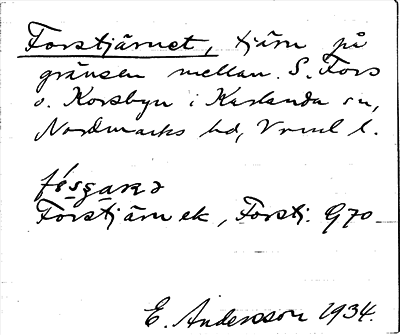 Forstjärnet, tjärn på
gränsen mellan S. Fors
o. Korsbyn i Karlanda sn,
Nordmarks hd, Vrml l.
Forstjärn ek, Forstj. G70
E. Andersson 1934.